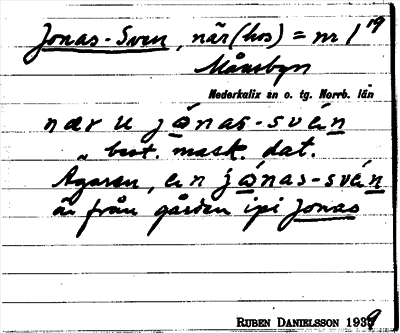 Jonas-Sven, när (hos) = nr 1¹⁹
Månsbyn
Nederkalix sn o. tg. Norrb. län
nær u jó̱nas-svén̲
„ best. mask. dat.
Ägaren, en jó̱nas-svén̲
är från gården ipi Jonas
RUBEN DANIELSSON 1939